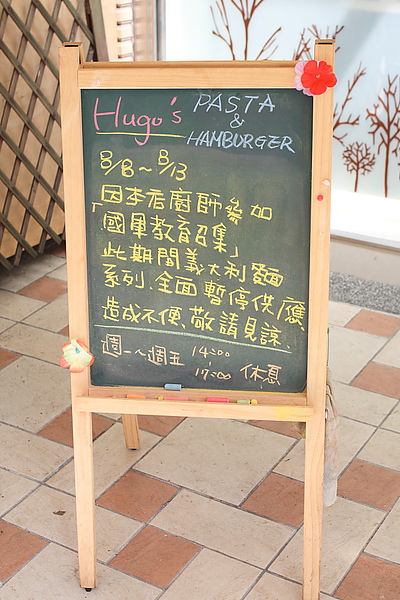 Hugo's PASTA
&
HAMBURGER
8/8~8/13
因本店廚師參加
「國軍教育召集」
此期間義大利麵
系列.全面暫停供應
造成不便.敬請見諒.
週一~週五 14:00
17:00 休息